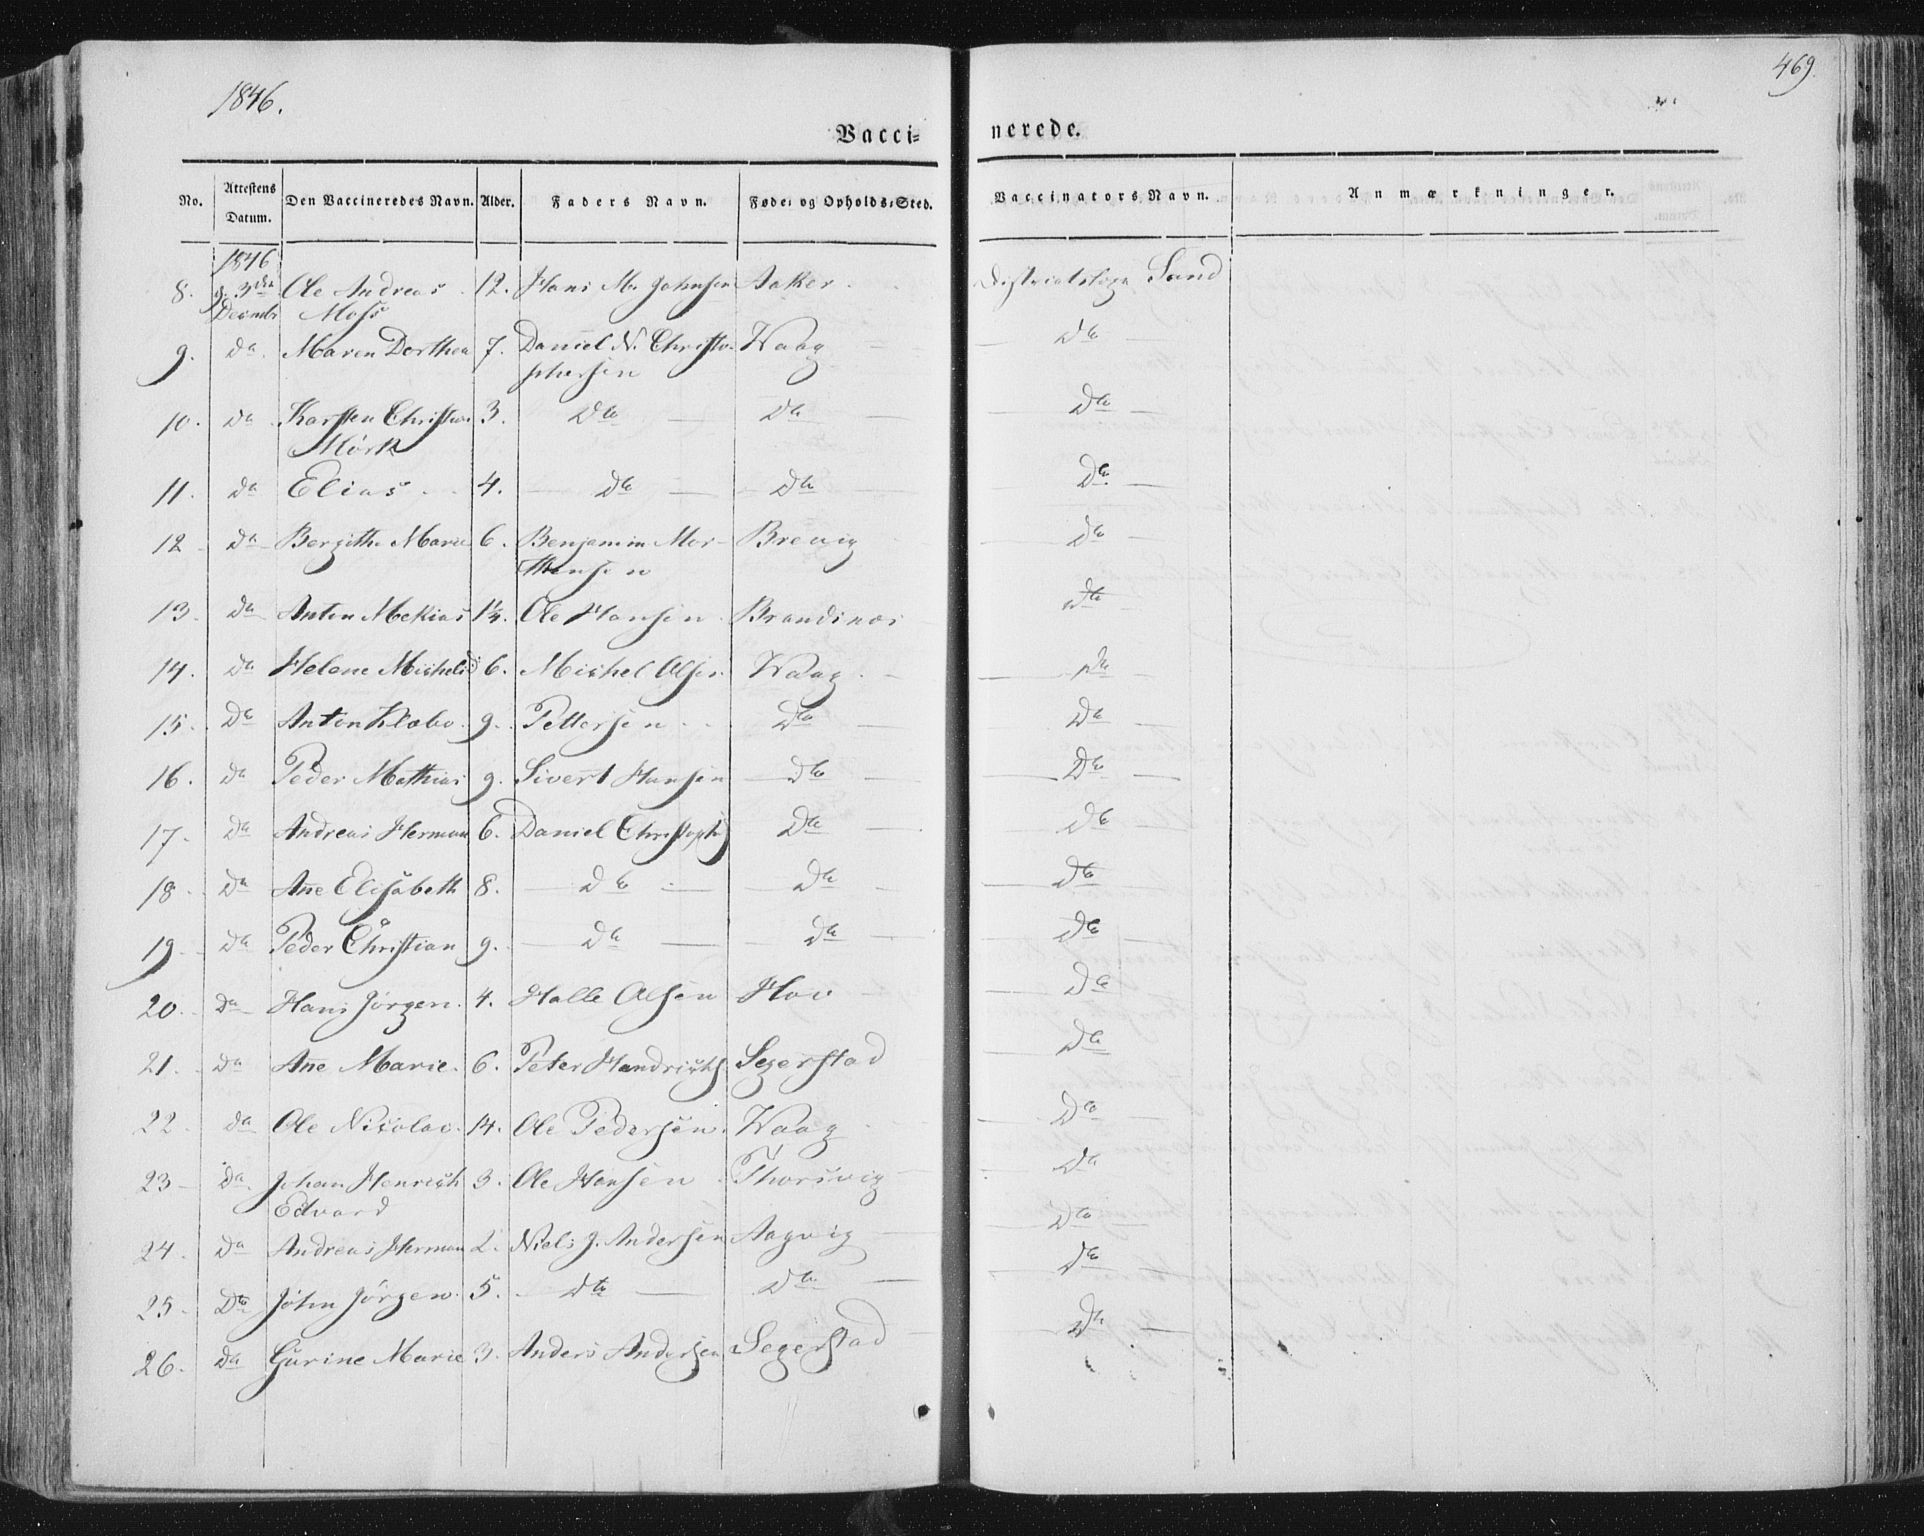 1846.
469.
Vacci= nerede.
No. Attestens Datum. Den Vaccineredes Navn. Alder. Faders Navn. Føde= og Opholds=Sted. Vaccinators Navn. Anmærkninger.
1846
8. d. 3die Ole Andreas 12. Hans M. Johnsen Aaker Districtslæge Sand
Decembr Moss
9. Do Maren Dorthea 7. Daniel N. Christo- Waag Do
phersen
10. Do Karsten Christian 3. Do Do Do
Mörk
11. Do Elias 4. Do Do Do
12 Do Bergithe Marie 6. Benjamin Mor- Brevig Do
thensen
13. Do Anton Mekias 14. Ole Hansen Brandsnæs Do
14. Do Helene Michelsd: 6. Michel Olsen Waag Do
15. Do Anton Klæbo 9. Pettersen Do Do
16. Do Peder Mathias 9. Sivert Hansen Do Do
17. Do Andreas Herman 6. Daniel Christoph Do Do
18 Do Ane Elisabeth 8. Do Do Do
19 Do Peder Christian 9. Do Do Do
20. Do Hans Jörgen 4. Halle Olsen Hov Do
21. Do Ane Marie 6. Peter Hendrichs Segerstad Do
22. Do Ole Nicolai 14. Ole Pedersen Waag Do
23 Do Johan Henrich 3. Ole Hansen Thorsvig Do
Edvard
24. Do Andreas Herman 2. Niels J. Andersen Aagvig Do
25. Do John Jörgen 5. Do Do Do
26. Do Gurine Marie 3. Anders Andersen Segerstad Do